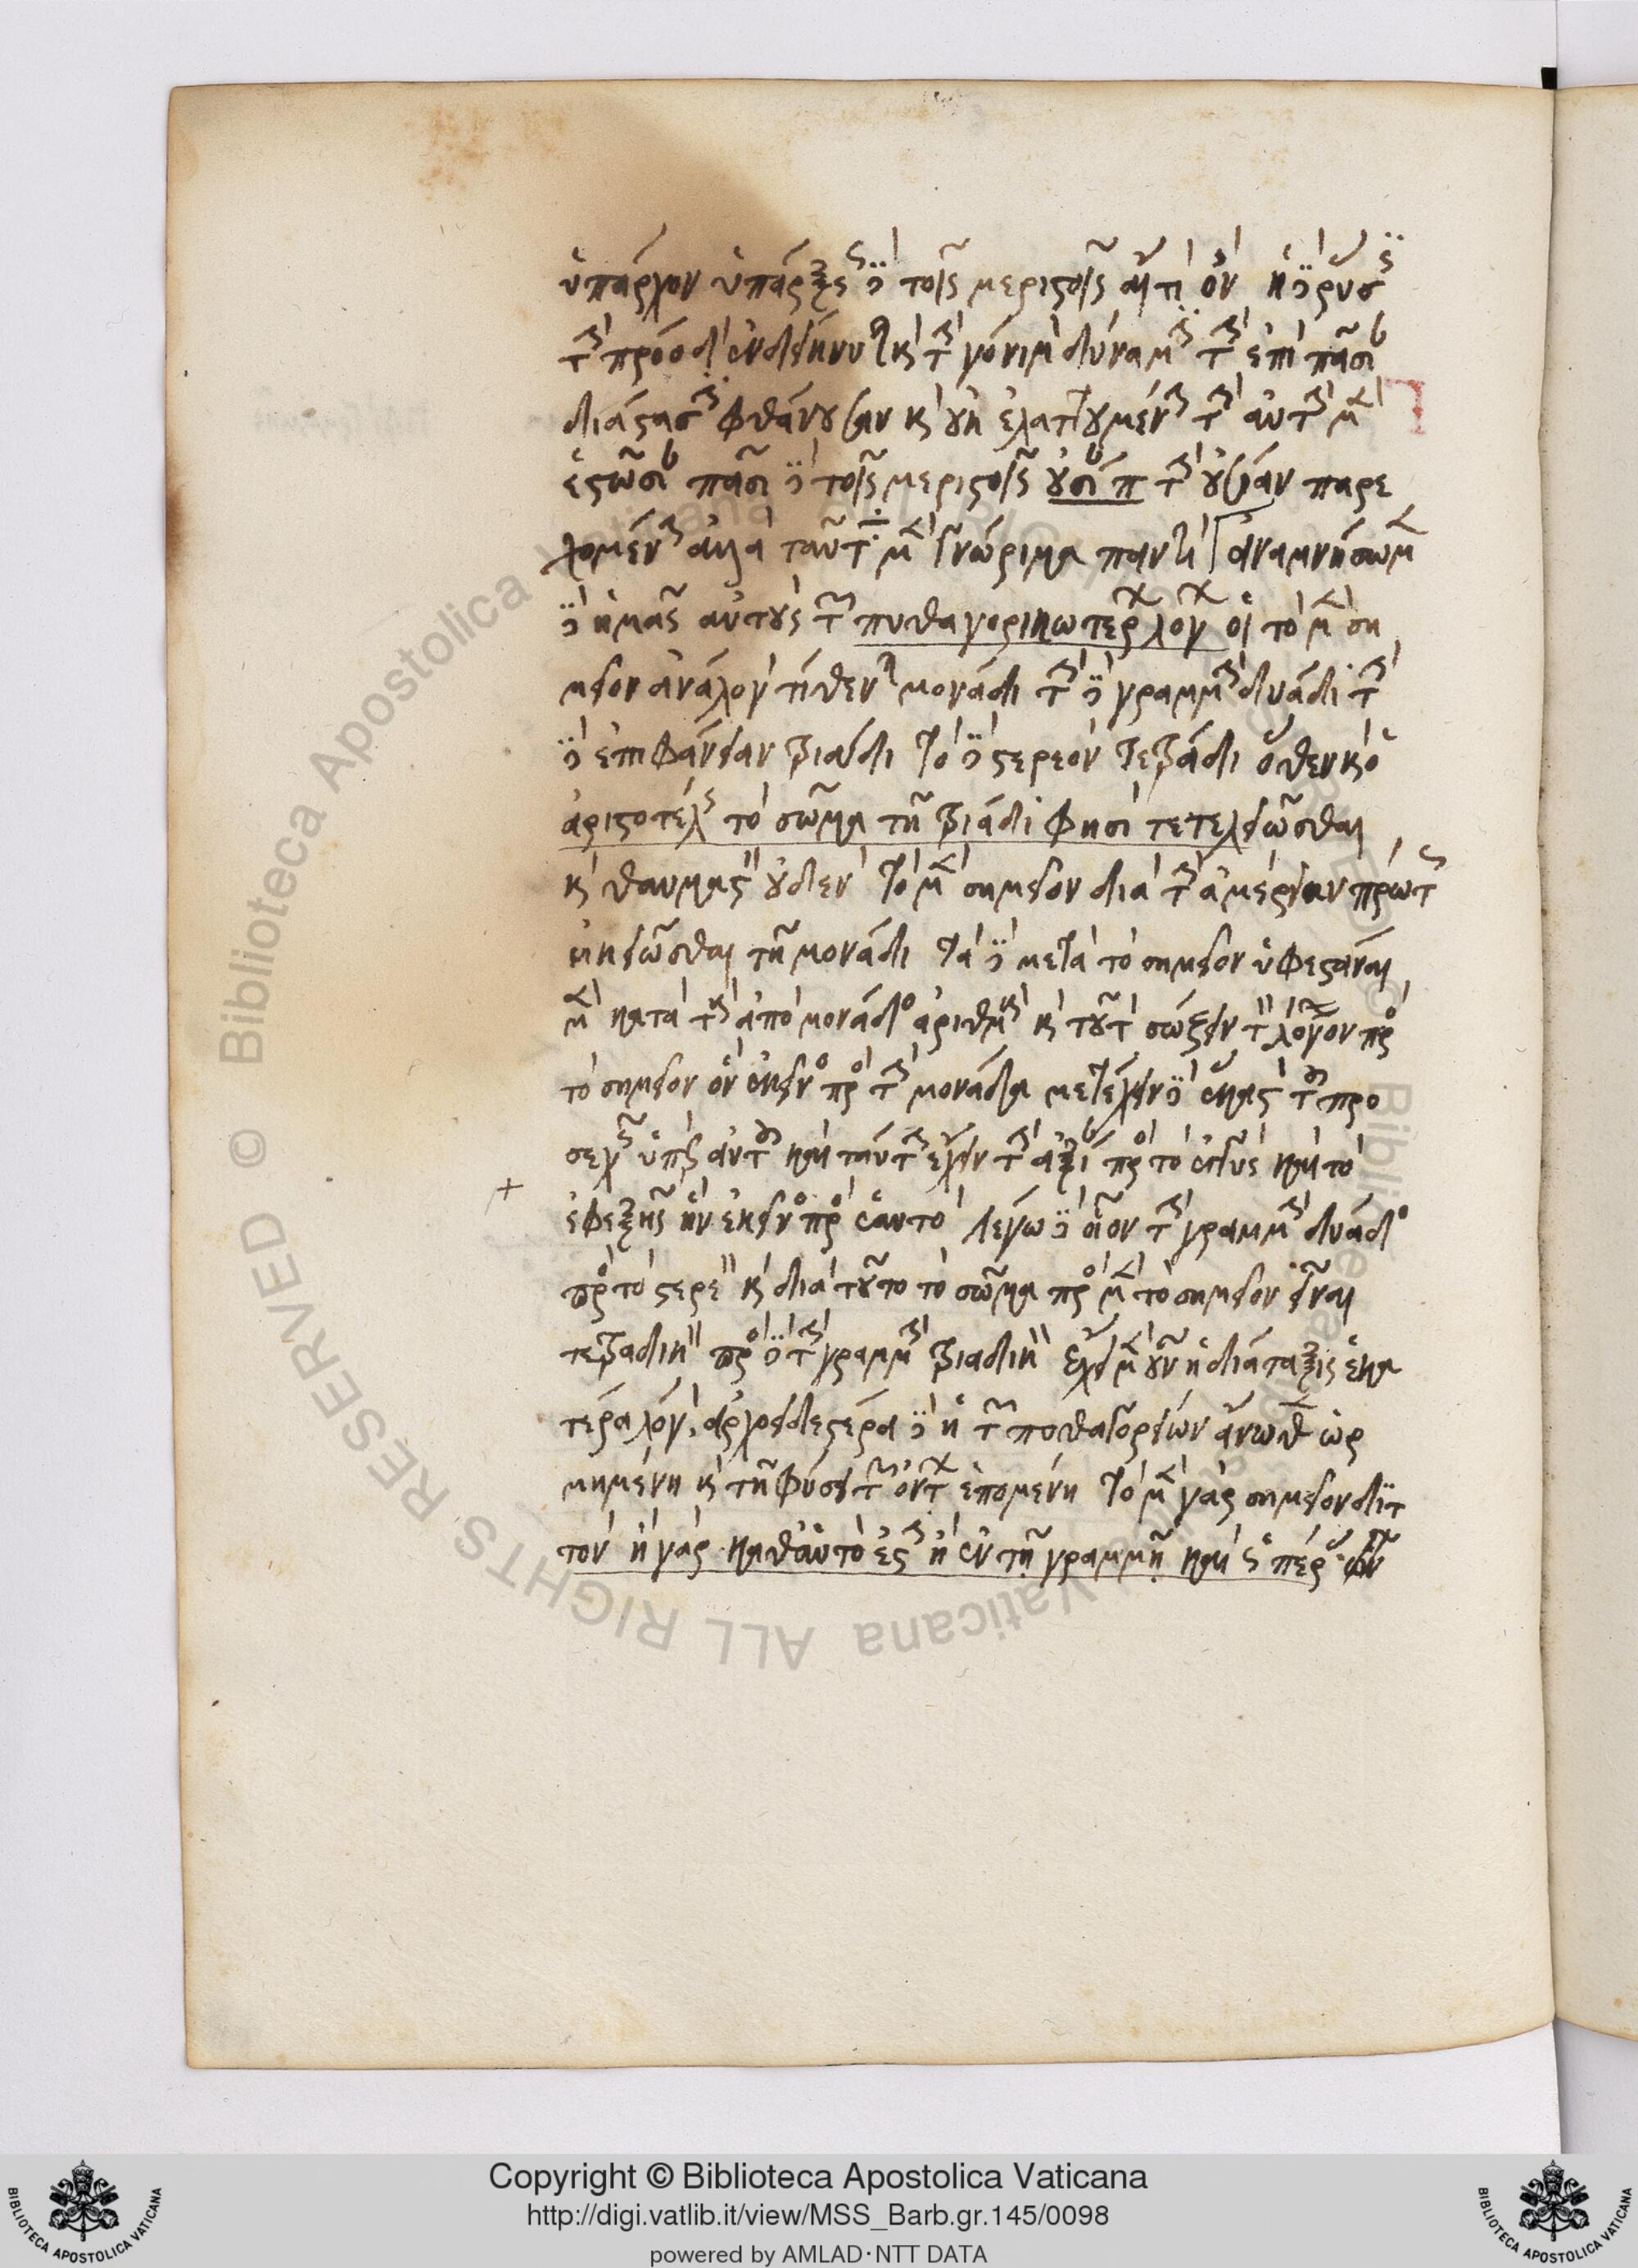 ὑπάρχον ὑπάρξεως δὲ τοῖς μεριστοῖς αἴτιον ἡ δὲ ῥύσις
τὴν πρόοδον ἐνδείκνυται καὶ τὴν γόνιμον δύναμιν τὴν ἐπὶ πᾶσι
διάστασιν φθάνουσαν καὶ οὐκ ἐλαττουμένην τὴν αὐτὴν μὲν
ἑστῶσι πᾶσι δὲ τοῖς μεριστοῖς τὴν οὐσίαν παρε
χομένην ἀλλὰ ταῦτα μὲν γνώριμα ἀναμνήσωμεν
δὲ ἡμᾶς αὐτοὺς τῶν πυθαγορικωτέρων λόγων οἳ τὸ μὲν ση
μεῖον ἀνάλογον τίθενται μονάδι τὴν δὲ γραμμὴν δυάδι τὴν
δὲ ἐπιφάνειαν τριάδι τὸ δὲ στερεὸν τετράδι ὅθεν καὶ ὁ
ἀριστοτέλης τὸ σῶμα τῇ τριάδι φησὶ τετελειῶσθαι
καὶ θαυμαστὸν οὐδὲν τὸ μὲν σημεῖον διὰ τὴν ἀμέρειαν πρώτως
τῇ μονάδι τὰ δὲ μετὰ τὸ σημεῖον ὑφεστάναι
μὲν κατὰ τοὺς ἀπὸ μονάδος ἀριθμοὺς καὶ τοῦτον σώζειν τὸν λόγον πρὸς
τὸ σημεῖον ὃν ἐκεῖνος πρὸς τὴν μονάδα μετέχειν δὲ ἕκαστον τῶν προ
σεχῶς ὑπὲρ αὐτὸ καὶ ταύτην ἔχειν τὴν ἀξίαν πρὸς τὸ καὶ τὸ
ἐφεξῆς ἣν ἐκεῖνο πρὸς ἑαυτό λέγω δὲ οἷον τὴν γραμμὴν δυάδος
πρὸς τὸ στερεὸν καὶ διὰ τοῦτο τὸ σῶμα πρὸς μὲν τὸ σημεῖον εἶναι
τετραδικὸν πρὸς δὲ τὴν γραμμὴν τριαδικὸν ἔχει μὲν οὖν ἡ διάταξις ἑκα
τέρα λόγον ἀρχοειδεστέρα δὲ ἡ τῶν πυθαγορείων ἄνωθεν ὡρ
μημένη καὶ τῇ φύσει τῶν ὄντων ἑπομένη τὸ μὲν γὰρ σημεῖον διτ
τόν ἢ γὰρ καθ' αὑτό ἐστιν ἢ ἐν τῇ γραμμῇ καὶ ὡς πέρας
Copyright © Biblioteca Apostolica Vaticana
http://digi.vatlib.it/view/MSS_Barb.gr.145/0098
powered by AMLAD·NTT DATA